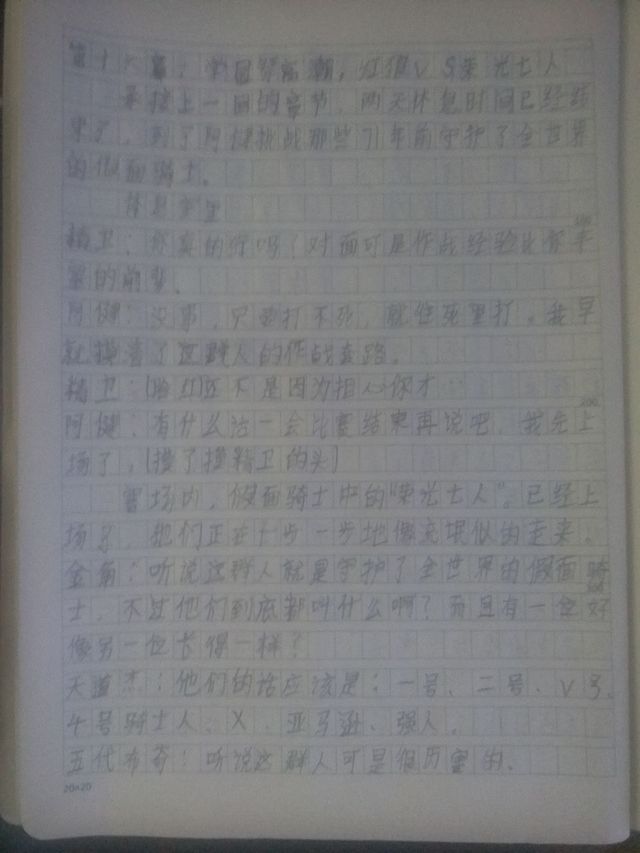 第十六章：学园祭高潮，红狼VS荣光七人
承接上一回的章节，两天休息时间已经结
束了，到了阿健挑战那些71年前守护了全世界
的假面骑士。
休息室里
精卫：你真的行吗？对面可是作战经验比你丰
富的前辈。
阿健：没事，只要打不死，就往死里打。我早
就摸清了这群人的作战套路。
精卫：(脸红)还不是因为担心你才…
阿健：有什么话一会比赛结束再说吧，我先上
场了，(摸了摸精卫的头)
赛场内，假面骑士中的“荣光七人”。已经上
场了，他们正在一步一步地像流氓似的走来。
金角：听说这群人就是守护了全世界的假面骑
士，不过他们到底都叫什么啊？而且有一位好
像另一位长得一样？
天道杰：他们的话应该是：一号、二号、V3、
4号骑士人、X、亚马逊、强人。
五代布奇：听说这群人可是很厉害的、
20×20